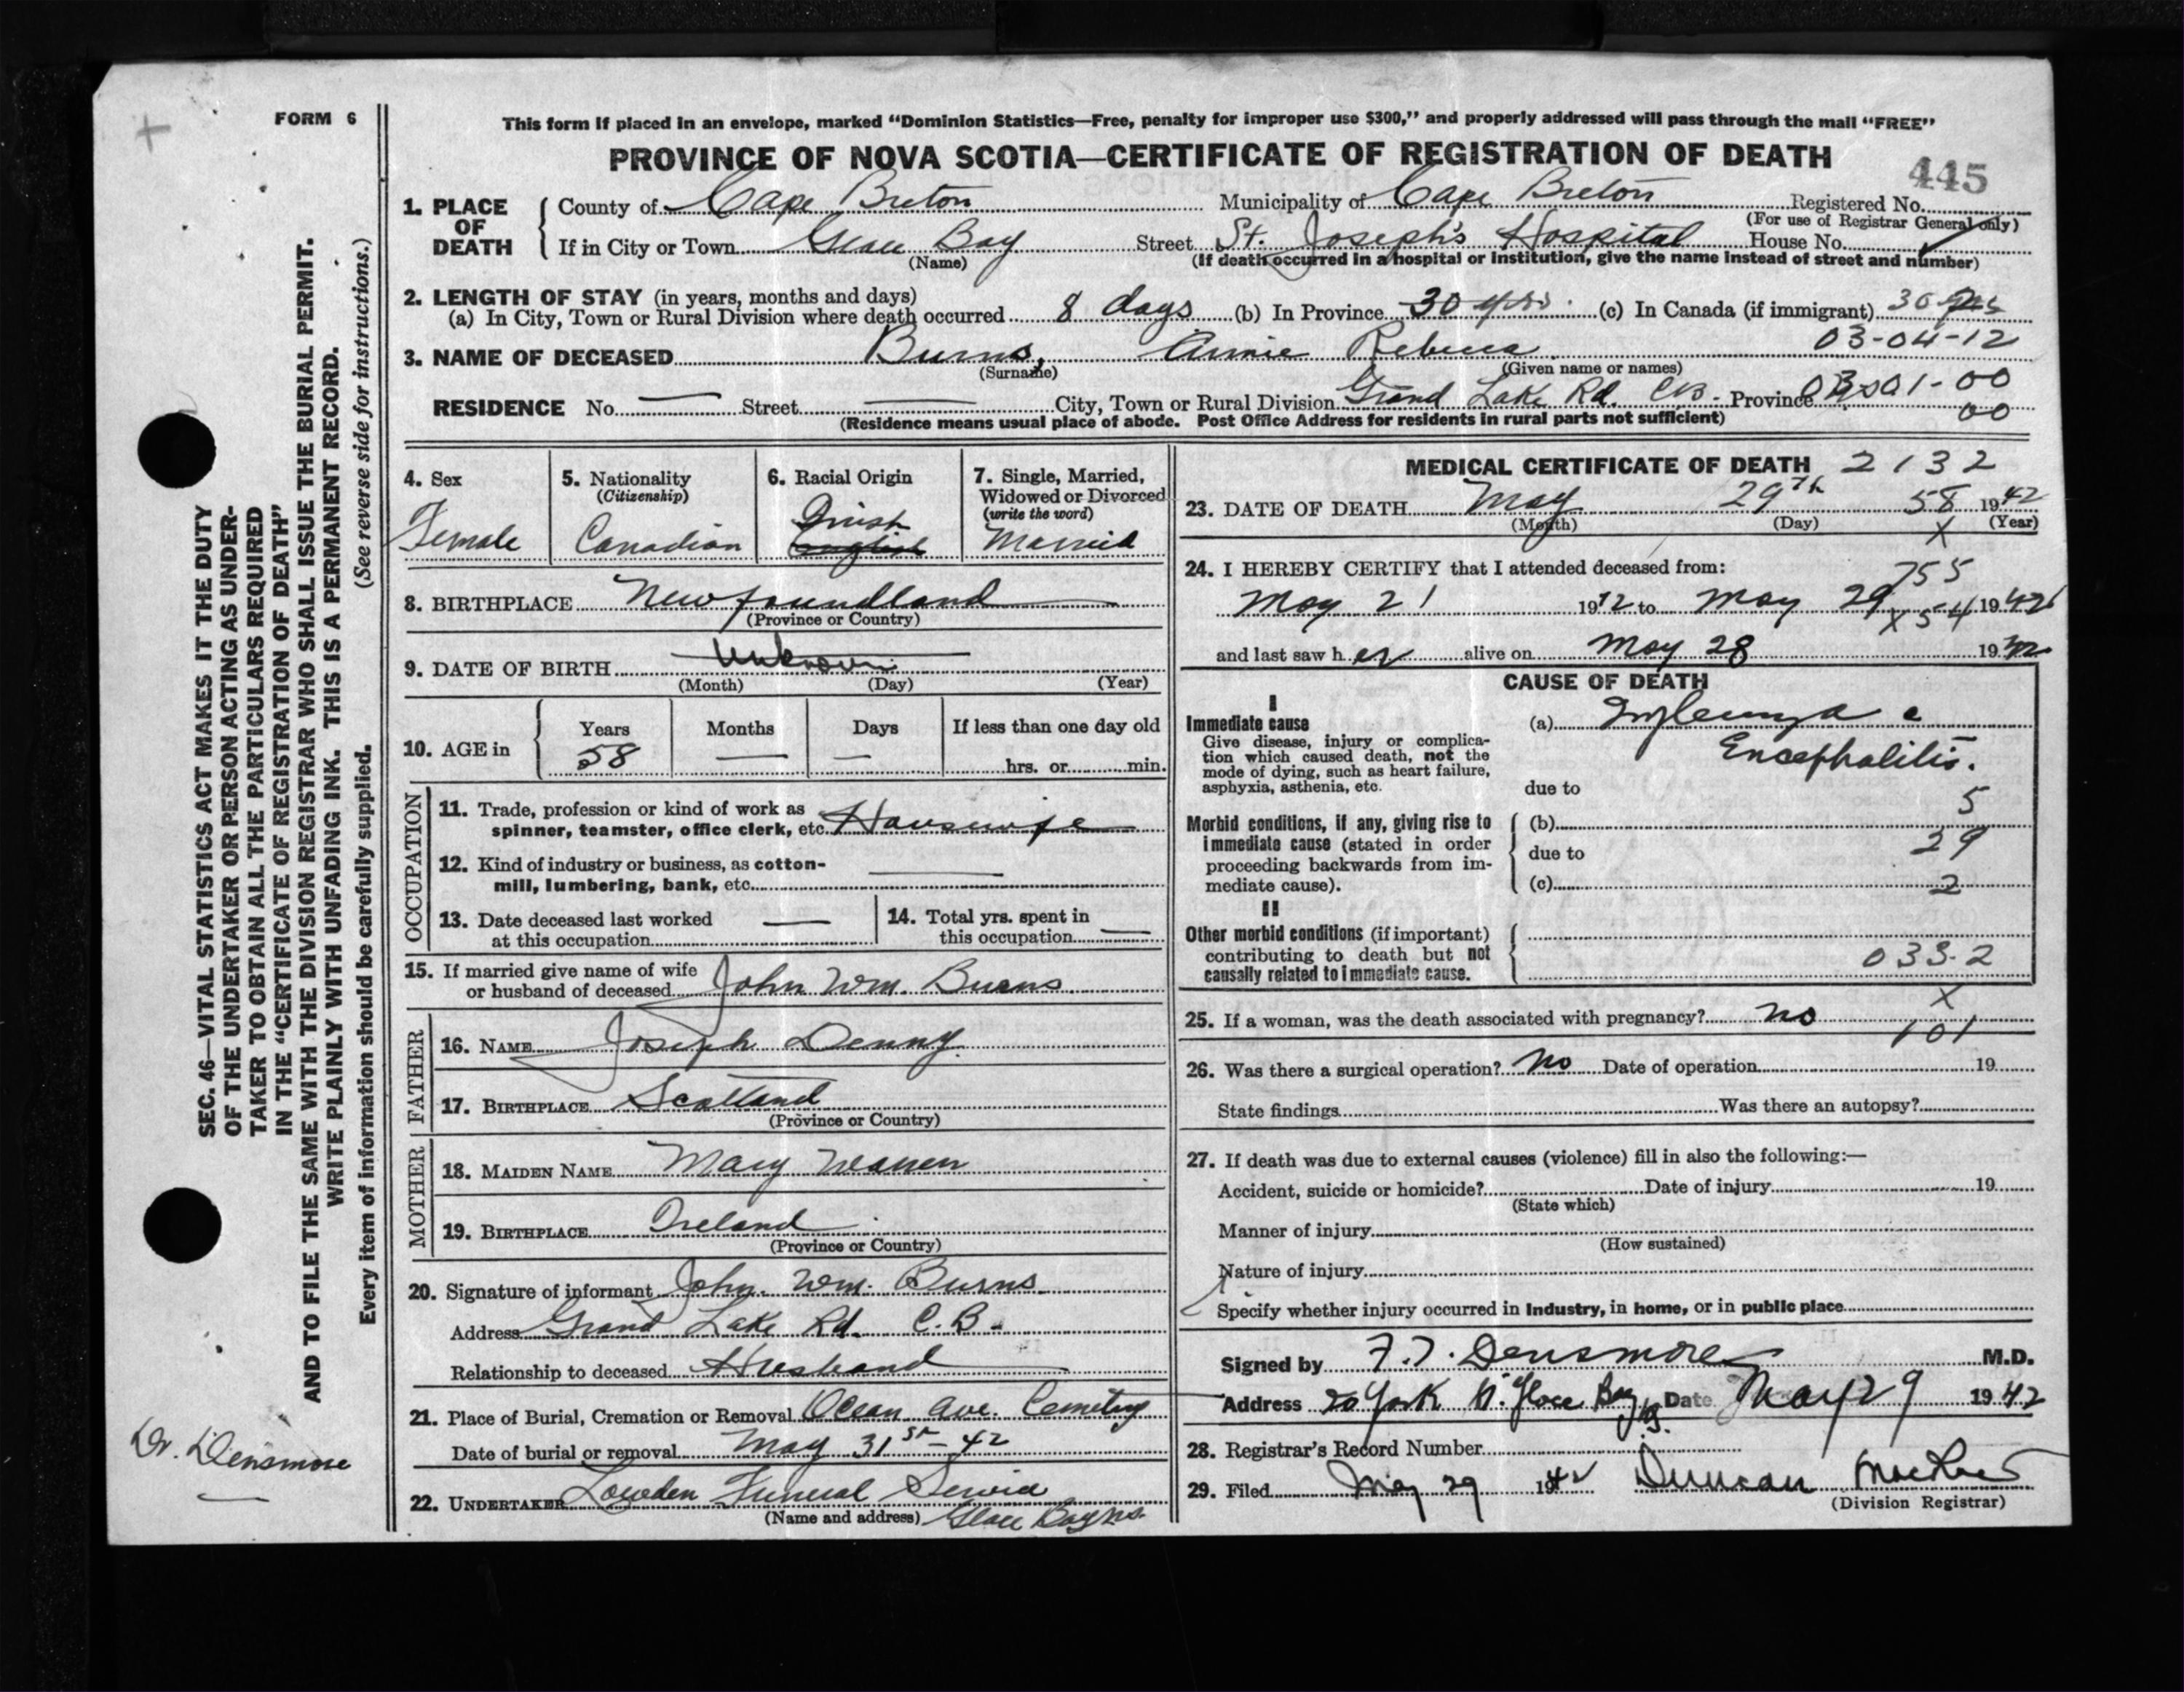 FORM 6
This form if placed in an envelope, marked "Dominion Statistics—Free, penalty for improper use $300," and properly addressed will pass through the mail "FREE"
PROVINCE OF NOVA SCOTIA—CERTIFICATE OF REGISTRATION OF DEATH
445
1. PLACE OF DEATH County of Cape Breton Municipality of Cape Breton Registered No.
(For use of Registrar General only)
If in City or Town Glace Bay Street St. Joseph's Hospital House No.
(Name) (If death occurred in a hospital or institution, give the name instead of street and number)
2. LENGTH OF STAY (in years, months and days)
(a) In City, Town or Rural Division where death occurred 8 days (b) In Province 30 yrs. (c) In Canada (if immigrant) 30 yrs
03-04-12
3. NAME OF DECEASED Burns, Annie Rebecca
(Surname) (Given name or names)
RESIDENCE No. — Street — City, Town or Rural Division Grand Lake Rd. C.B. Province 01-00
00
(Residence means usual place of abode. Post Office Address for residents in rural parts not sufficient)
4. Sex Female
5. Nationality (Citizenship) Canadian
6. Racial Origin Irish English
7. Single, Married, Widowed or Divorced (write the word) Married
8. BIRTHPLACE Newfoundland
(Province or Country)
9. DATE OF BIRTH Unknown
(Month) (Day) (Year)
10. AGE in Years Months Days If less than one day old
58 — — hrs. or min.
OCCUPATION
11. Trade, profession or kind of work as
spinner, teamster, office clerk, etc. Housewife
12. Kind of industry or business, as cotton-
mill, lumbering, bank, etc. —
13. Date deceased last worked
at this occupation —
14. Total yrs. spent in
this occupation —
15. If married give name of wife
or husband of deceased John Wm. Burns
FATHER
16. NAME Joseph Denny
17. BIRTHPLACE Scotland
(Province or Country)
MOTHER
18. MAIDEN NAME Mary Warren
19. BIRTHPLACE Ireland
(Province or Country)
20. Signature of informant John Wm. Burns
Address Grand Lake Rd. C.B.
Relationship to deceased Husband
21. Place of Burial, Cremation or Removal Ocean Ave. Cemetery
Date of burial or removal May 31st - 42
22. UNDERTAKER Lowden Funeral Service
(Name and address) Glace Bay N.S.
MEDICAL CERTIFICATE OF DEATH 2132
23. DATE OF DEATH May 29th 58 1942
(Month) (Day) X (Year)
24. I HEREBY CERTIFY that I attended deceased from:
755
May 21 1942 to May 29 1942
X 54
and last saw her alive on May 28 1942
CAUSE OF DEATH
I
Immediate cause
Give disease, injury or complica-
tion which caused death, not the
mode of dying, such as heart failure,
asphyxia, asthenia, etc.
(a) Influenza c
Encephalitis.
due to
5
Morbid conditions, if any, giving rise to
immediate cause (stated in order
proceeding backwards from im-
mediate cause).
(b)
due to 29
(c) 2
II
Other morbid conditions (if important)
contributing to death but not
causally related to immediate cause.
033-2
X
25. If a woman, was the death associated with pregnancy? no
101
26. Was there a surgical operation? No Date of operation 19
State findings Was there an autopsy?
27. If death was due to external causes (violence) fill in also the following:—
Accident, suicide or homicide? Date of injury 19
(State which)
Manner of injury
(How sustained)
Nature of injury
Specify whether injury occurred in Industry, in home, or in public place
Signed by F.T. Densmore M.D.
Address 20 York St. Glace Bay N.S. Date May 29 1942
28. Registrar's Record Number
29. Filed May 29 1942 Duncan
(Division Registrar)
SEC. 46—VITAL STATISTICS ACT MAKES IT THE DUTY
OF THE UNDERTAKER OR PERSON ACTING AS UNDER-
TAKER TO OBTAIN ALL THE PARTICULARS REQUIRED
IN THE "CERTIFICATE OF REGISTRATION OF DEATH"
AND TO FILE THE SAME WITH THE DIVISION REGISTRAR WHO SHALL ISSUE THE BURIAL PERMIT.
WRITE PLAINLY WITH UNFADING INK. THIS IS A PERMANENT RECORD.
Every item of information should be carefully supplied. (See reverse side for instructions.)
Dr. Densmore